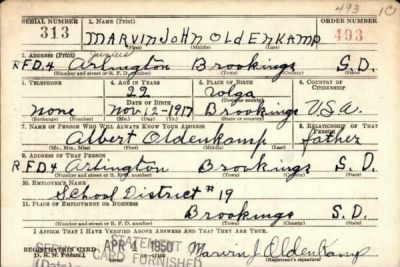 493 10
SERIAL NUMBER 1. NAME (Print) ORDER NUMBER
313 MARVIN JOHN OLDENKAMP 493
2. ADDRESS (Print)
R.F.D.4 Arlington Brookings S.D.
(Number and street or R. F. D. number) (Town) (County) (State)
3. TELEPHONE 4. AGE IN YEARS 5. PLACE OF BIRTH 6. COUNTRY OF CITIZENSHIP
22 Volga
DATE OF BIRTH (Town or county)
none Nov. 12-1917 Brookings U.S.A.
(Exchange) (Number) (Mo.) (Day) (Yr.) (State or country)
7. NAME OF PERSON WHO WILL ALWAYS KNOW YOUR ADDRESS 8. RELATIONSHIP OF THAT PERSON
Albert Oldenkamp father
(Mr., Mrs., Miss) (First) (Middle) (Last)
9. ADDRESS OF THAT PERSON
R.F.D.4 Arlington Brookings S.D.
(Number and street or R. F. D. number) (Town) (County) (State)
10. EMPLOYER'S NAME
School District #19
11. PLACE OF EMPLOYMENT OR BUSINESS
Brookings S.D.
(Number and street or R. F. D. number) (Town) (County) (State)
I AFFIRM THAT I HAVE VERIFIED ABOVE ANSWERS AND THAT THEY ARE TRUE.
STATEMENT
REGISTRATION CARD APR 4 1950 Marvin J. Oldenkamp
D. S. S. Form 1 CARD FURNISHED (Registrant's signature)
(Date)